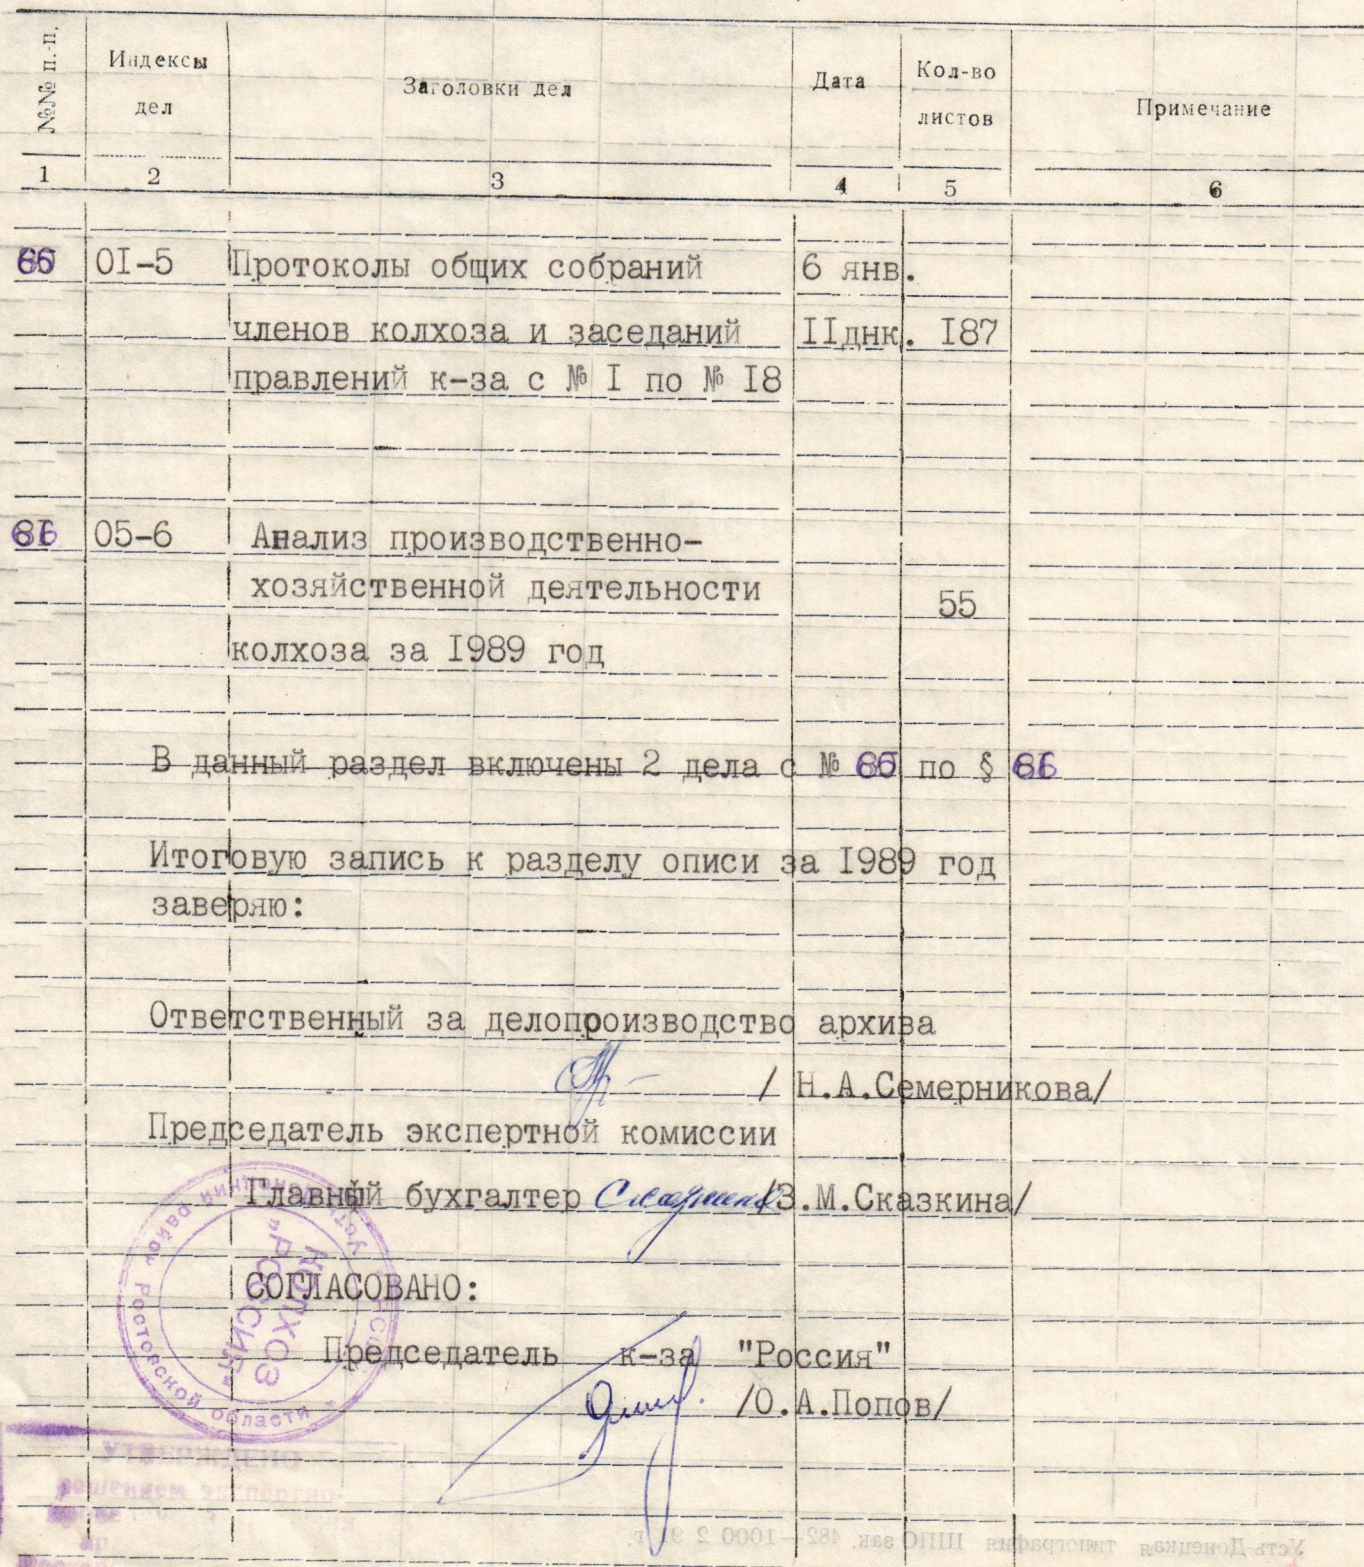 №№ п.-п. Индексы дел Заголовки дел Дата Кол-во листов Примечание
1 2 3 4 5 6
01-5 Протоколы общих собраний 6 янв.
членов колхоза и заседаний IIднк. I87
правлений к-за с № I по № I8
05-6 Анализ производственно-
хозяйственной деятельности 55
колхоза за I989 год
В данный раздел включены 2 дела с № по §
Итоговую запись к разделу описи за I989 год
заверяю:
Ответственный за делопроизводство архива
/ Н.А.Семерникова/
Председатель экспертной комиссии
Главный бухгалтер /З.М.Сказкина/
СОГЛАСОВАНО:
Председатель к-за "Россия"
/О.А.Попов/
КОЛХОЗ
„РОССИЯ"
район Ростовской области
УТВЕРЖДЕНО
решением экспертно-
Усть-Донецкая типография ШПО зак. 482—1000